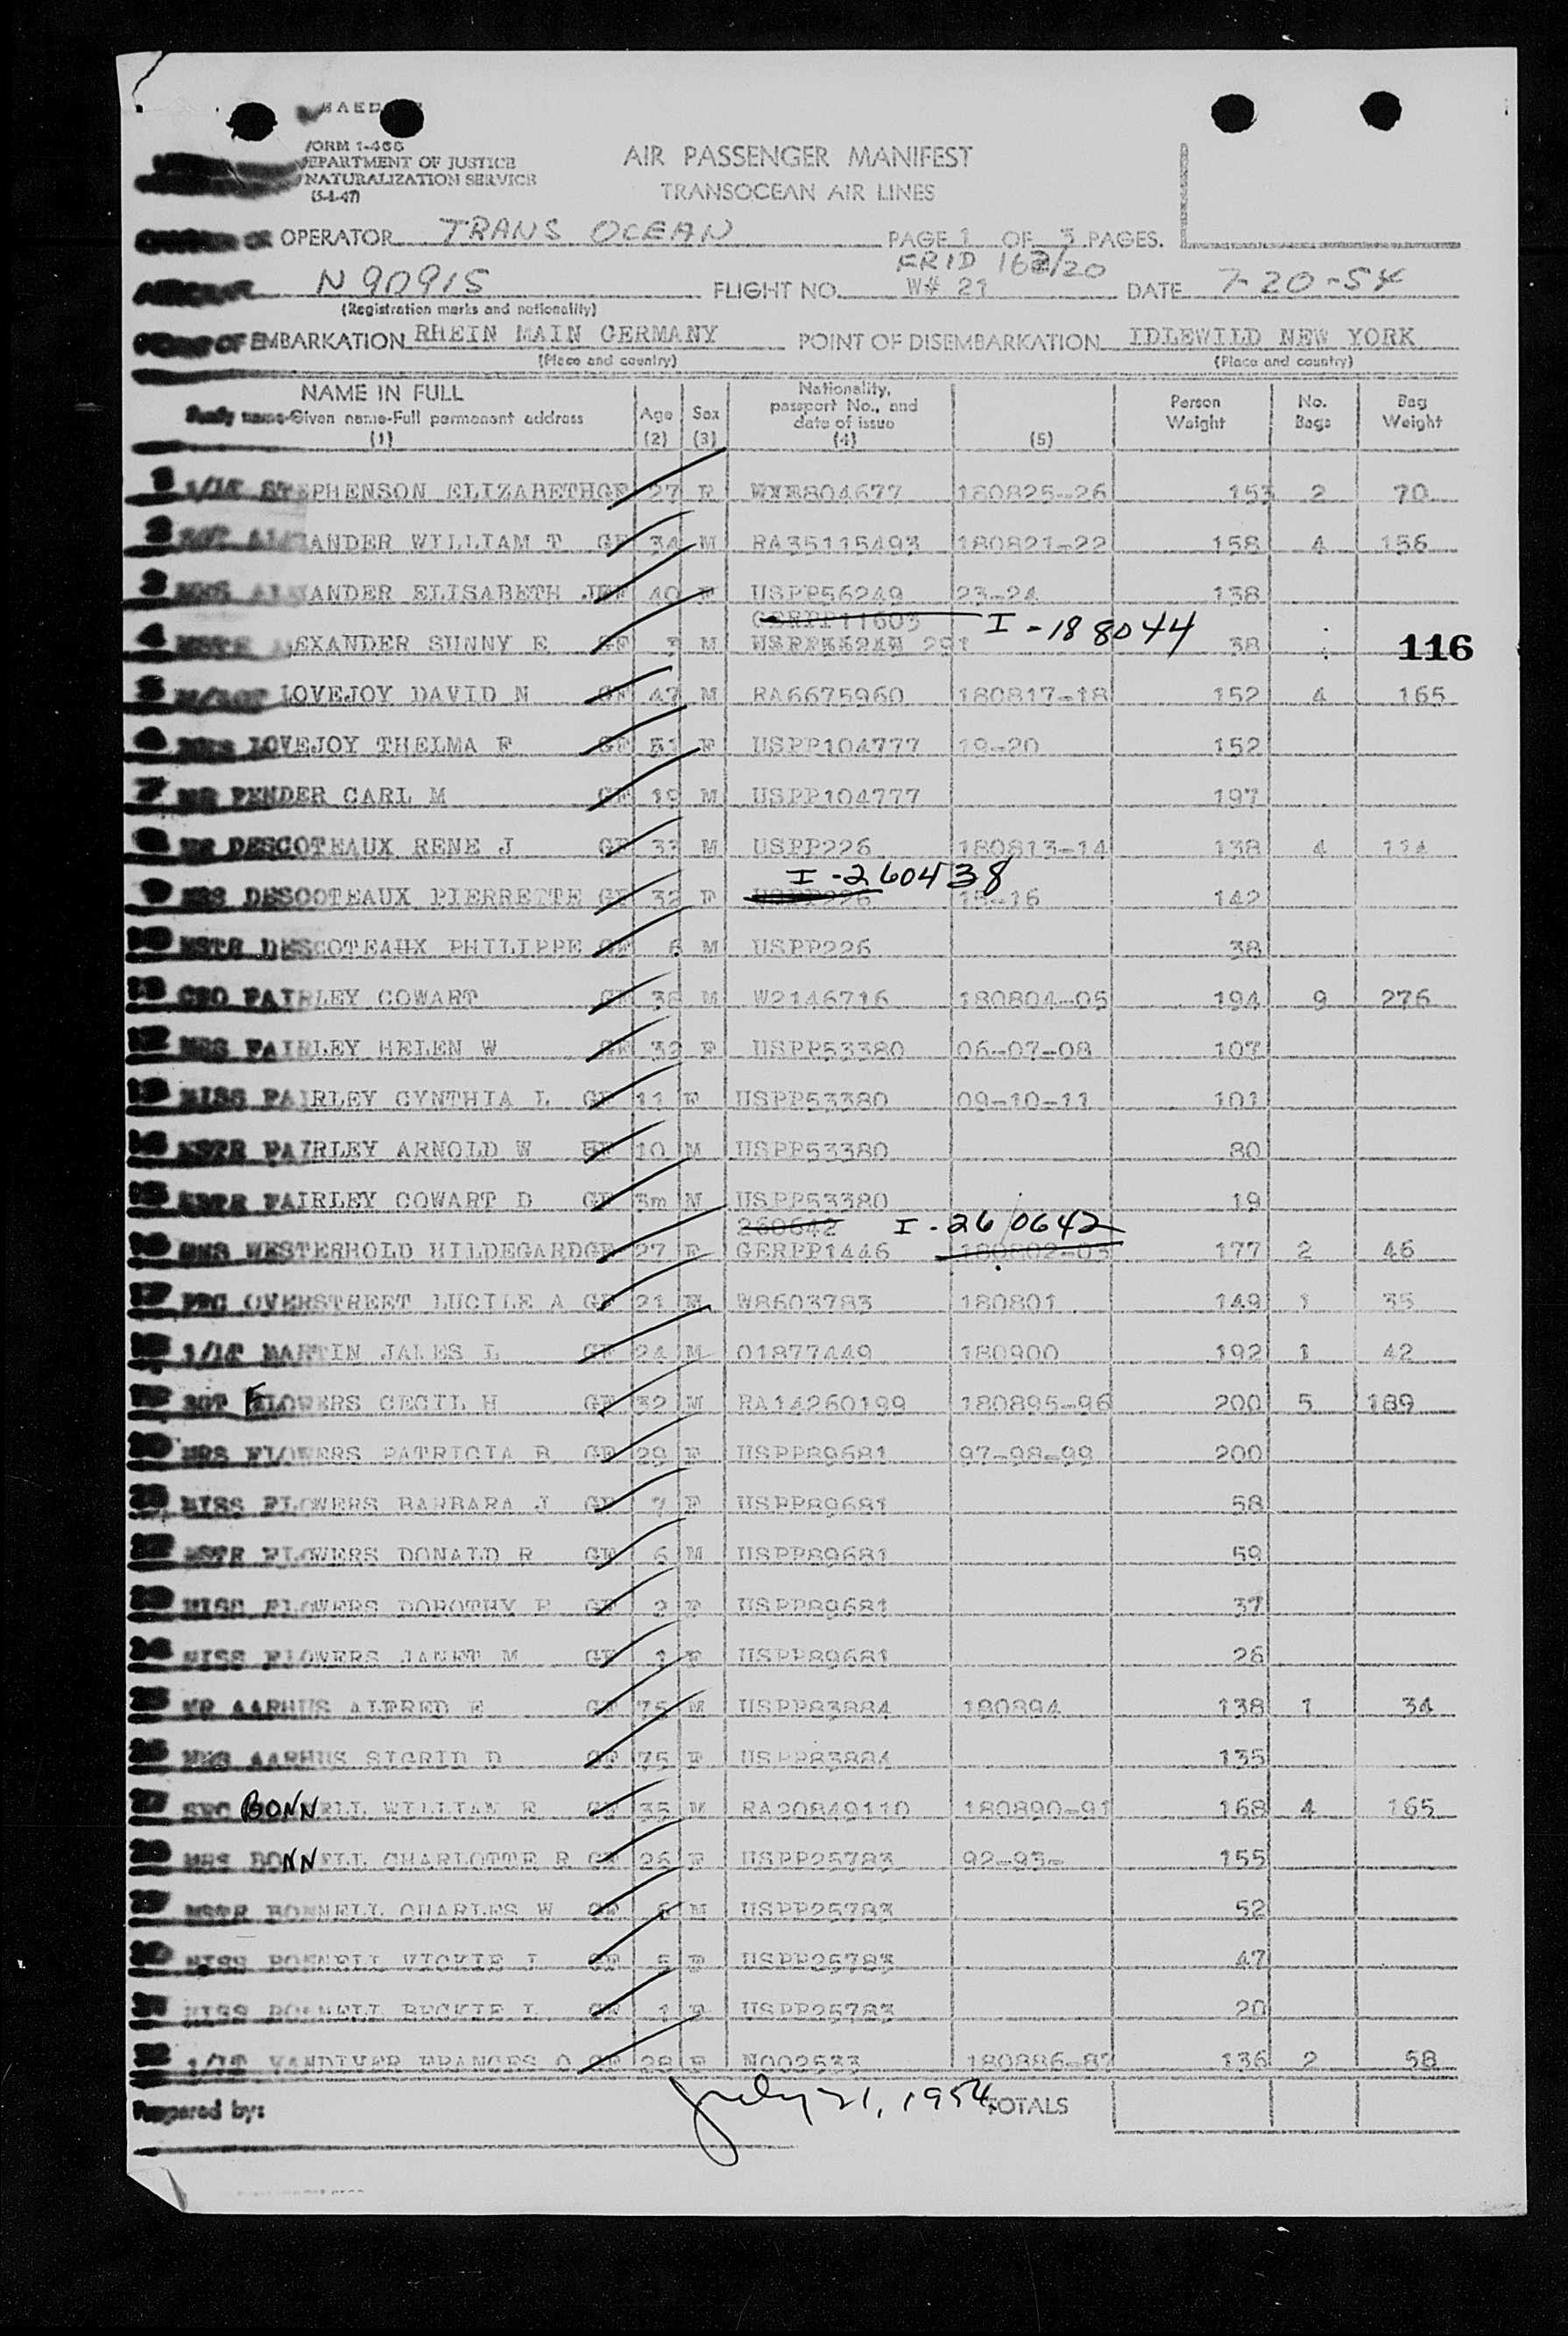 FORM I-466
DEPARTMENT OF JUSTICE
NATURALIZATION SERVICE
(5-1-47)
AIR PASSENGER MANIFEST
TRANSOCEAN AIR LINES
OPERATOR TRANS OCEAN PAGE 1 OF 3 PAGES.
FRID 162/20
N90915 FLIGHT NO. W# 21 DATE 7-20-54
(Registration marks and nationality)
OF EMBARKATION RHEIN MAIN GERMANY POINT OF DISEMBARKATION IDLEWILD NEW YORK
(Place and country) (Place and country)
NAME IN FULL Age Sex Nationality, passport No., and date of issue Person Weight No. Bags Bag Weight
Family name-Given name-Full permanent address
(1) (2) (3) (4) (5)
1 1/LT STEPHENSON ELIZABETH GF 27 F 804677 180825-26 153 2 70
2 SGT ALEXANDER WILLIAM T GF 34 M RA35115493 180821-22 158 4 156
3 MRS ALEXANDER ELISABETH J GF 40 F USPP56249 23-24 138
GERPP11603 I-188044
4 MSTR ALEXANDER SUNNY E GF 3 M 291 38
116
5 M/SGT LOVEJOY DAVID N GF 47 M RA6675960 180817-18 152 4 165
6 MRS LOVEJOY THELMA F GF 51 F USPP104777 19-20 152
7 MR PENDER CARL M GF 19 M USPP104777 197
8 MR DESCOTEAUX RENE J GF 33 M USPP226 180813-14 138 4 114
I-260438
9 MRS DESCOTEAUX PIERRETTE GF 32 F USPP226 15-16 142
10 MSTR DESCOTEAUX PHILIPPE GF 6 M USPP226 38
11 CWO FAIRLEY COWART GF 38 M W2146716 180804-05 194 9 276
12 MRS FAIRLEY HELEN W GF 32 F USPP53380 06-07-08 107
13 MISS FAIRLEY CYNTHIA L GF 11 F USPP53380 09-10-11 101
14 MSTR FAIRLEY ARNOLD W GF 10 M USPP53380 80
15 MSTR FAIRLEY COWART D GF 3m M USPP53380 19
260642 I-260642
16 MRS WESTERHOLD HILDEGARD GF 27 F GERPP1446 180802-03 177 2 46
17 PFC OVERSTREET LUCILE A GF 21 F W8603783 180801 149 1 35
18 1/LT MARTIN JAMES L GF 24 M 01877449 180900 192 1 42
19 SGT FLOWERS CECIL H GF 32 M RA14260199 180895-96 200 5 189
20 MRS FLOWERS PATRICIA B GF 29 F USPP89681 97-98-99 200
21 MISS FLOWERS BARBARA J GF 7 F USPP89681 58
22 MSTR FLOWERS DONALD R GF 6 M USPP89681 59
23 MISS FLOWERS DOROTHY E GF 2 F USPP89681 37
24 MISS FLOWERS JANET M GF 1 F USPP89681 26
25 MR AARHUS ALFRED E GF 75 M USPP83884 180894 138 1 34
26 MRS AARHUS SIGRID D GF 75 F USPP83884 135
27 SFC BONNELL WILLIAM R GF 35 M RA20849110 180890-91 168 4 165
28 MRS BONNELL CHARLOTTE R GF 26 F USPP25783 92-93- 155
29 MSTR BONNELL CHARLES W GF 6 M USPP25783 52
30 MISS BONNELL VICKIE J GF 5 F USPP25783 47
31 MISS BONNELL BECKIE L GF 1 F USPP25783 20
32 1/LT VANDIVER FRANCES O GF 28 F N002533 180886-87 136 2 58
Prepared by: July 21, 1954 TOTALS